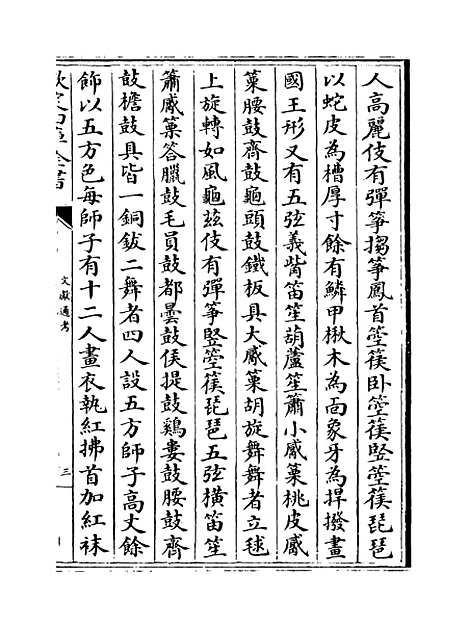 人高麗伎有彈箏搊箏鳳首箜篌卧箜篌竪箜篌琵琶
以蛇皮為槽厚寸餘有鱗甲楸木為面象牙為捍撥畫
國王形又有五弦義觜笛笙葫蘆笙簫小觱篥桃皮觱
篥腰鼓齊鼓龜頭鼓鐵板具大觱篥胡旋舞舞者立毬
上旋轉如風龜兹伎有彈箏竪箜篌琵琶五弦横笛笙
簫觱篥答臘鼓毛員鼓都曇鼓侯提鼓鷄婁鼓腰鼓齊
鼓檐鼓具皆一銅鈸二舞者四人設五方師子高丈餘
飾以五方色每師子有十二人畫衣執紅拂首加紅袜
文獻通考
三